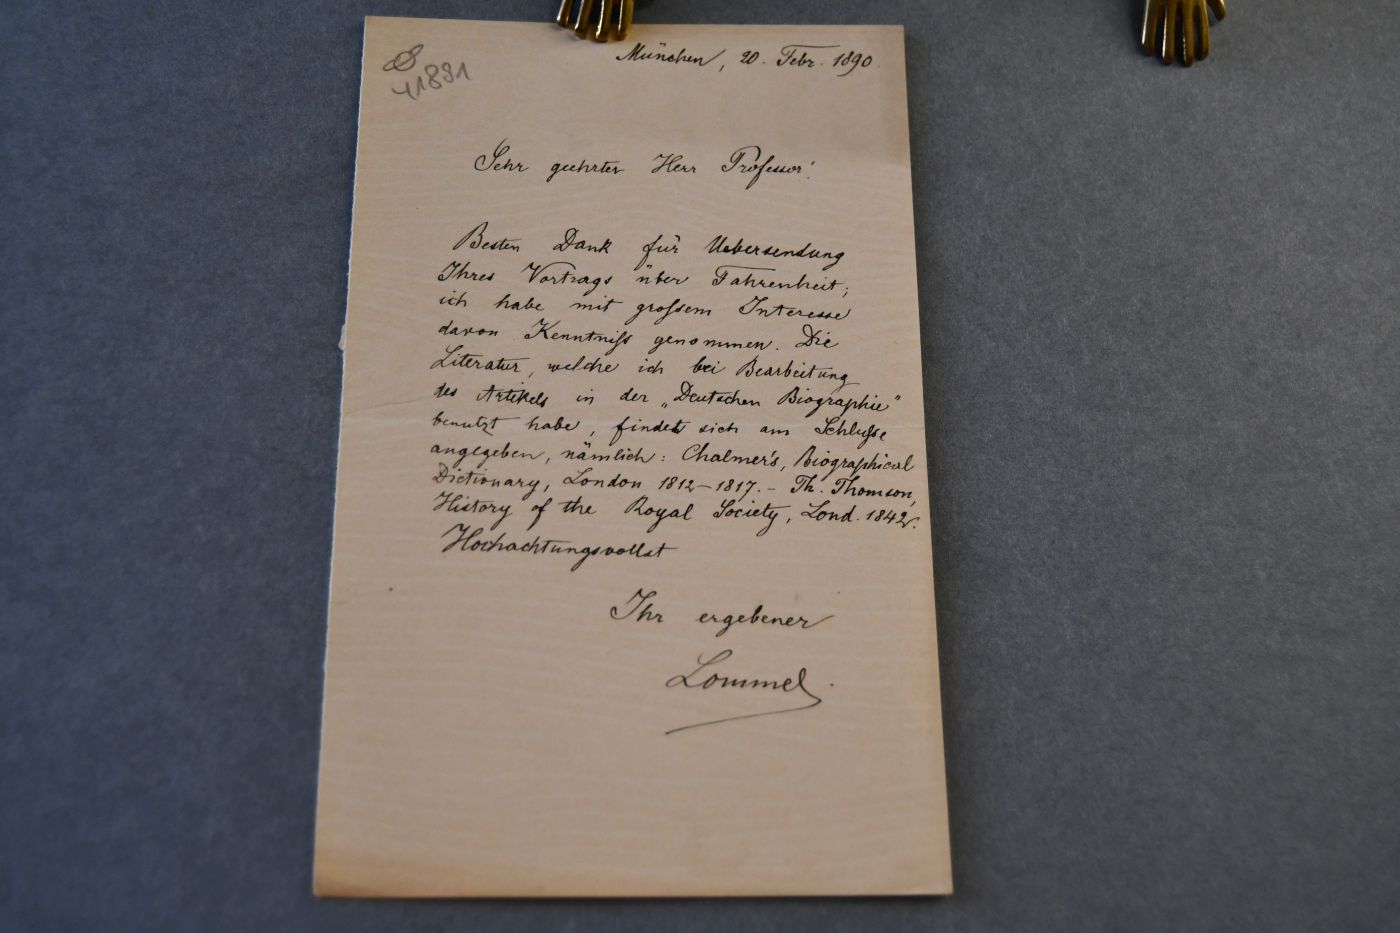 München, 20. Febr. 1890.
41891
Sehr geehrter Herr Professor!
Besten Dank für Uebersendung
Ihres Vortrags über Fahrenheit;
ich habe mit grossem Interesse
davon Kenntniss genommen. Die
Literatur, welche ich bei Bearbeitung
des Artikels in der „Deutschen Biographie"
benutzt habe, findet sich am Schlusse
angegeben, nämlich: Chalmer's, Biographical
Dictionary, London 1812-1817. - Th. Thomson,
History of the Royal Society, Lond. 1842.
Hochachtungsvollst
Ihr ergebener
Lommel.